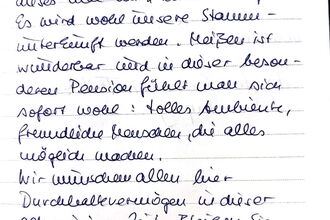 dieses
Es wird wohl unsere Stamm-
unterkunft werden. Meißen ist
wunderbar und in dieser beson-
deren Pension fühlt man sich
sofort wohl: tolles Ambiente,
freundliche Menschen, die alles
möglich machen.
Wir wünschen allen hier
Durchhaltevermögen in dieser